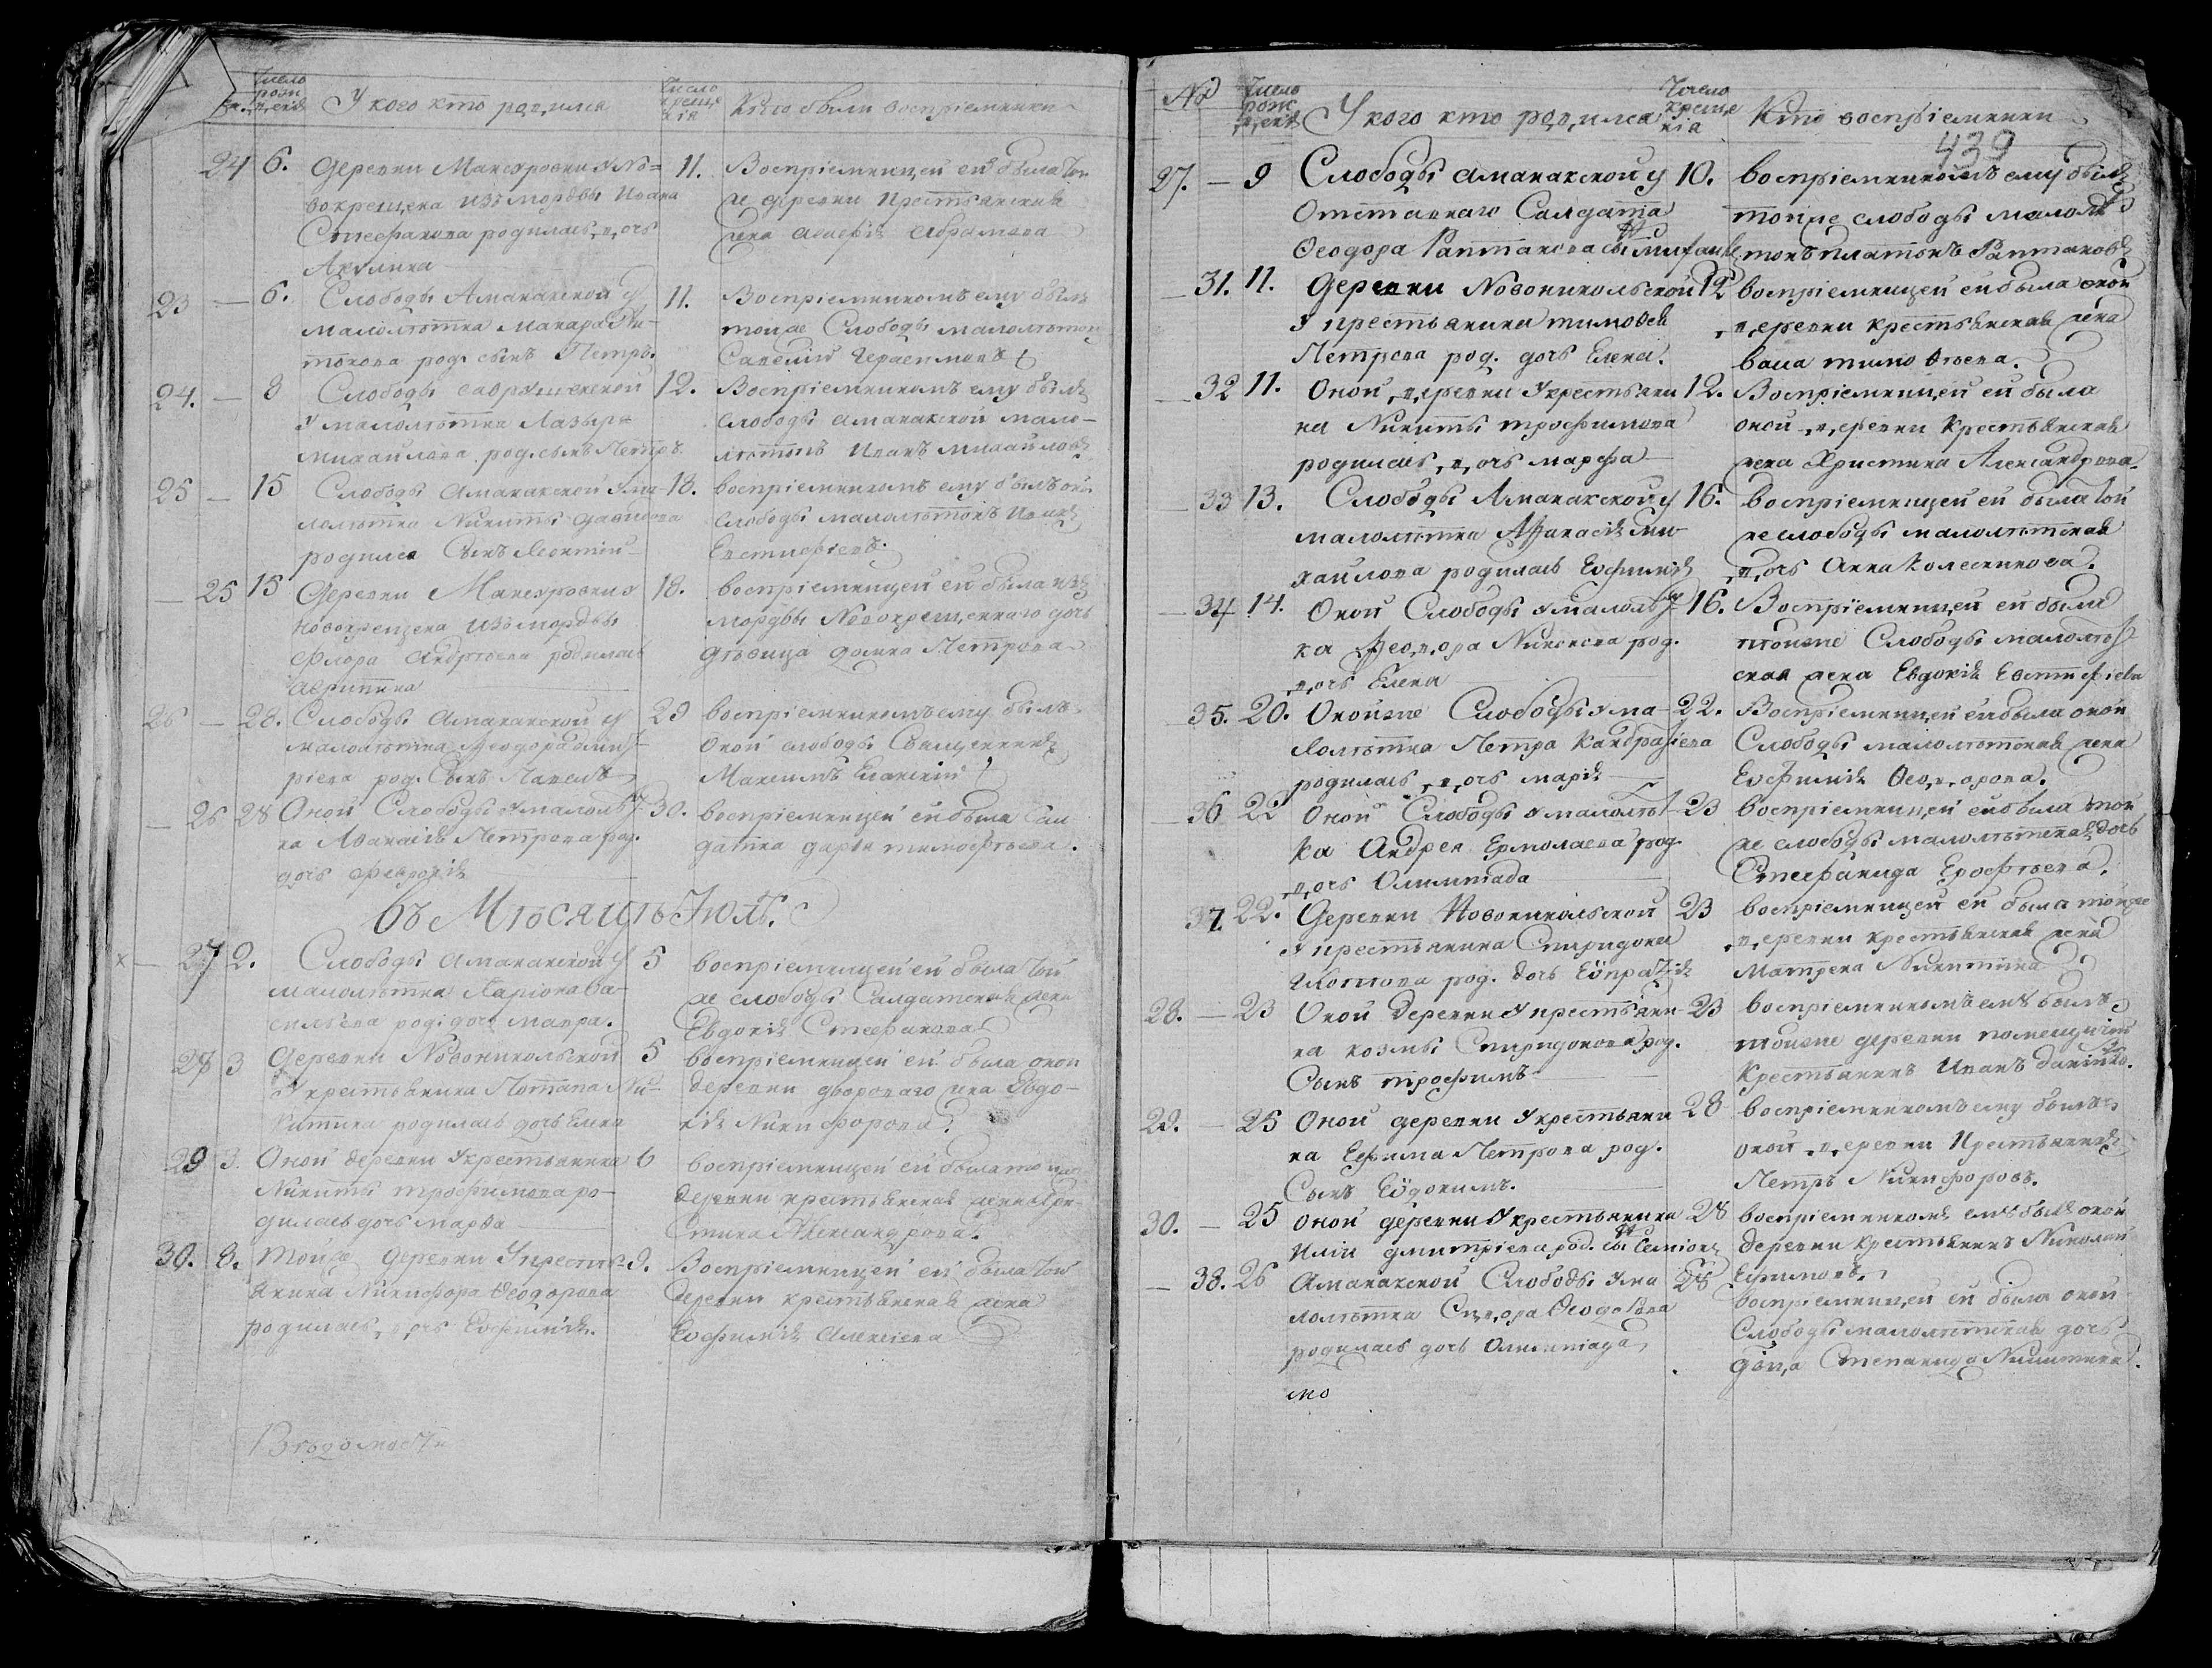 Число рожденія
У кого кто родился
Число крещенія
Кто были воспріемники
24 6. Деревни Мансуровки у но=
вокрещена изъ мордвы Ивана
Стефанова родилась дочь
Акулина
11. Воспріемницей ей была той
же деревни крестьянская
жена Абрамова
23 — 6. Слободы Аманакской у
малолѣтка Макара
род. сынъ Петръ.
11. Воспріемникомъ ему былъ
тойже Слободы малолѣтокъ
Савелій Герасимовъ
24. — 8 Слободы
у малолѣтка Лазаря
Михайлова род. сынъ Петръ
12. Воспріемникомъ ему былъ
слободы аманакской мало-
лѣтокъ Иванъ Михайловъ
25 — 15 Слободы аманакской у ма-
лолѣтка Никиты Данилова
родился Сынъ Леонтій
18. воспріемникомъ ему былъ оной
слободы малолѣтокъ Иванъ
Евстифіевъ.
25 15 Деревни Мансуровки у
новокрещена изъ мордвы
Флора Андрѣева родилась
агрипина
18. воспріемницей ей была изъ
мордвы Новокрещеннаго дочь
дѣвица домна Петрова
26 — 28. Слободы аманакской у
малолѣтка Ѳеодора Дмит-
ріева род. Сынъ Павелъ
29 воспріемникомъ ему былъ
оной слободы Священникъ
Максимъ
26 28 Оной Слободы у малолѣт-
ка Аѳанасія Петрова род.
дочь Февронія
30. воспріемницей ей была Сал
датка дарья тимофѣева.
Въ Мѣсяцѣ Июлѣ.
27 2. Слободы аманакской у
малолѣтка Ларіона Ва-
сильева род. дочь мавра.
5 воспріемницей ей была той
же слободы Салдатская жена
Евдокія Стефанова
28 3 Деревни Новоникольской
у крестьянина Потапа Ни-
китина родилась дочь Елена
5 воспріемницей ей была оной
деревни двороваго жена Евдо-
кія Никифорова.
29 3. Оной деревни у крестьянина
Никиты трофимова ро-
дилась дочь марѳа
6 воспріемницей ей была тойже
деревни крестьянская жена Хри-
стина Александрова.
30. 8. Тойже деревни у кресть-
янина Никифора Ѳеодорова
родилась дочь Евфимія.
9. Воспріемницей ей была той
деревни крестьянская жена
Евфимія Алексіева
№
Число рожденія
У кого кто родился
Число крещенія
Кто воспріемники
439
27. — 9 Слободы аманакской у
Отставнаго Салдата
Ѳеодора Раптанова сынъ
10. воспріемникомъ ему былъ
тойже слободы малолѣ
токъ платонъ Раптановъ
31. 11. Деревни Новоникольской
у крестьянина тимоѳея
Петрова род. дочь Елена.
12 воспріемницей ей была оной
деревни крестьянская жена
васа тимоѳѣева.
32 11. Оной деревни у крестьяни
на Никиты трофимова
родилась дочь марфа
12. Воспріемницей ей была
оной деревни Крестьянская
жена Христина Александрова.
33 13. Слободы Аманакской у
малолѣтка Афанасія Ми-
хайлова родилась Евфимія
16. воспріемницей ей была той
же слободы малолѣтская
дочь Анна Колесникова.
34 14. Оной Слободы у малолѣт
ка Ѳеодора род.
дочь Елена
16. Воспріемницей ей была
тойже Слободы малолѣт
ская жена Евдокія Евстифіева
35. 20. Онойже Слободы у ма-
лолѣтка Петра Кандратіева
родилась дочь марія
22. Воспріемницей ей была оной
Слободы малолѣтская жена
Евфимія Ѳеодорова.
36 22 Оной Слободы у малолѣт-
ка Андрея Ермолаева род.
дочь Олимпіада
23 воспріемницей ей была той
же слободы малолѣтская дочь
Стефанида Ерофѣева.
37 22. Деревни Новоникольской
у крестьянина Спиридона
род. дочь Еѵпраксія
23 воспріемницей ей была тойже
деревни крестьянская жена
Матрена Никитина
28. — 23 Оной деревни у крестьяни-
на козмы Спиридонова род.
Сынъ трофимъ
23 воспріемникомъ ему былъ
тойже деревни помещичей
крестьянинъ Иванъ
29. — 25 Оной деревни у крестьяни
на Ефима Петрова род.
Сынъ Еѵдокимъ.
28 воспріемникомъ ему былъ
оной деревни Крестьянинъ
Петръ Никифоровъ.
30. — 25 оной деревни у крестьянина
Иліи дмитріева род. сынъ Симіонъ
28 воспріемникомъ ему былъ оной
деревни крестьянинъ Николай
Ефимовъ.
38. 26 Аманакской Слободы у ма
лолѣтка Ѳеодорова
родилась дочь Олимпіада
28 воспріемницей ей была оной
Слободы малолѣтская дочь
Степанида Никитина.